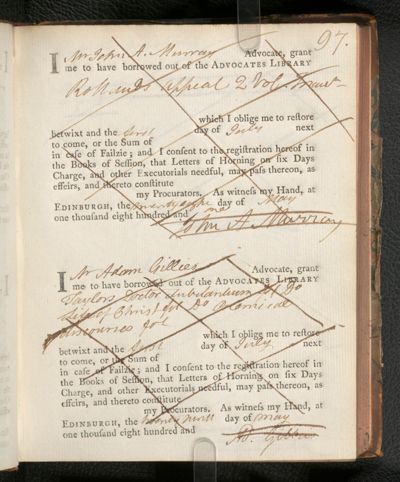 97.
I Mr John A. Murray Advocate, grant
me to have borrowed out of the ADVOCATES LIBRARY
appeal 2 Vol.
which I oblige me to restore
betwixt and the first day of July next
to come, or the Sum of
in case of Failzie; and I consent to the registration hereof in
the Books of Session, that Letters of Horning on six Days
Charge, and other Executorials needful, may pass thereon, as
effeirs, and thereto constitute
my Procurators. As witness my Hand, at
EDINBURGH, the day of May
one thousand eight hundred and one
John A. Murray
I Mr Adam Gillies Advocate, grant
me to have borrowed out of the ADVOCATES LIBRARY
Taylors Doctor Dubitantium Do
Life of Christ Do Polemical
discourses
which I oblige me to restore
betwixt and the first day of July next
to come, or the Sum of
in case of Failzie; and I consent to the registration hereof in
the Books of Session, that Letters of Horning on six Days
Charge, and other Executorials needful, may pass thereon, as
effeirs, and thereto constitute
my Procurators. As witness my Hand, at
EDINBURGH, the day of May
one thousand eight hundred and
Ad. Gillies